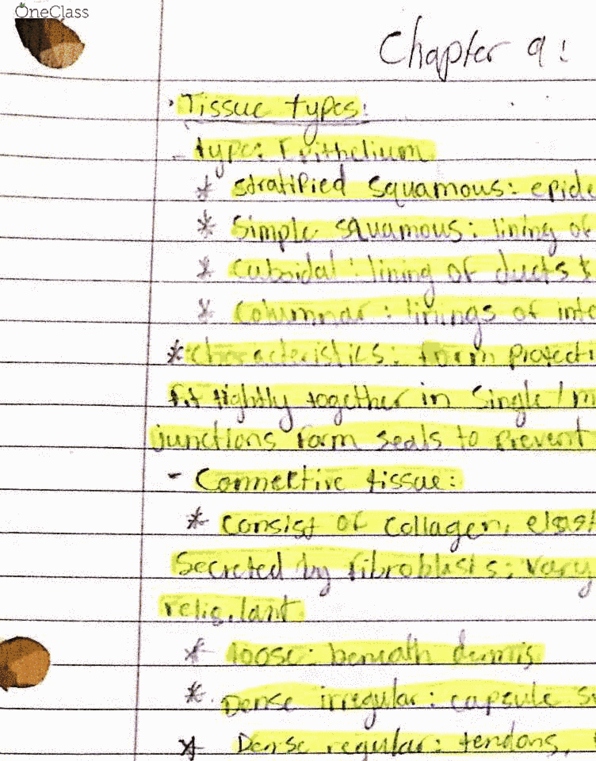 OneClass
Chapter 9:
Tissue types:
- type: Epithelium
* stratified squamous: epide
* Simple squamous: lining of
* Cuboidal: lining of ducts &
* Columnar: linings of inte
* characteristics: form protecti
fit tightly together in single / m
junctions form seals to prevent
- Connective tissue:
* consist of collagen, elast
Secreted by fibroblasts; vary
* loose: beneath dermis
* Dense irregular: capsule s
* Dense regular: tendons,